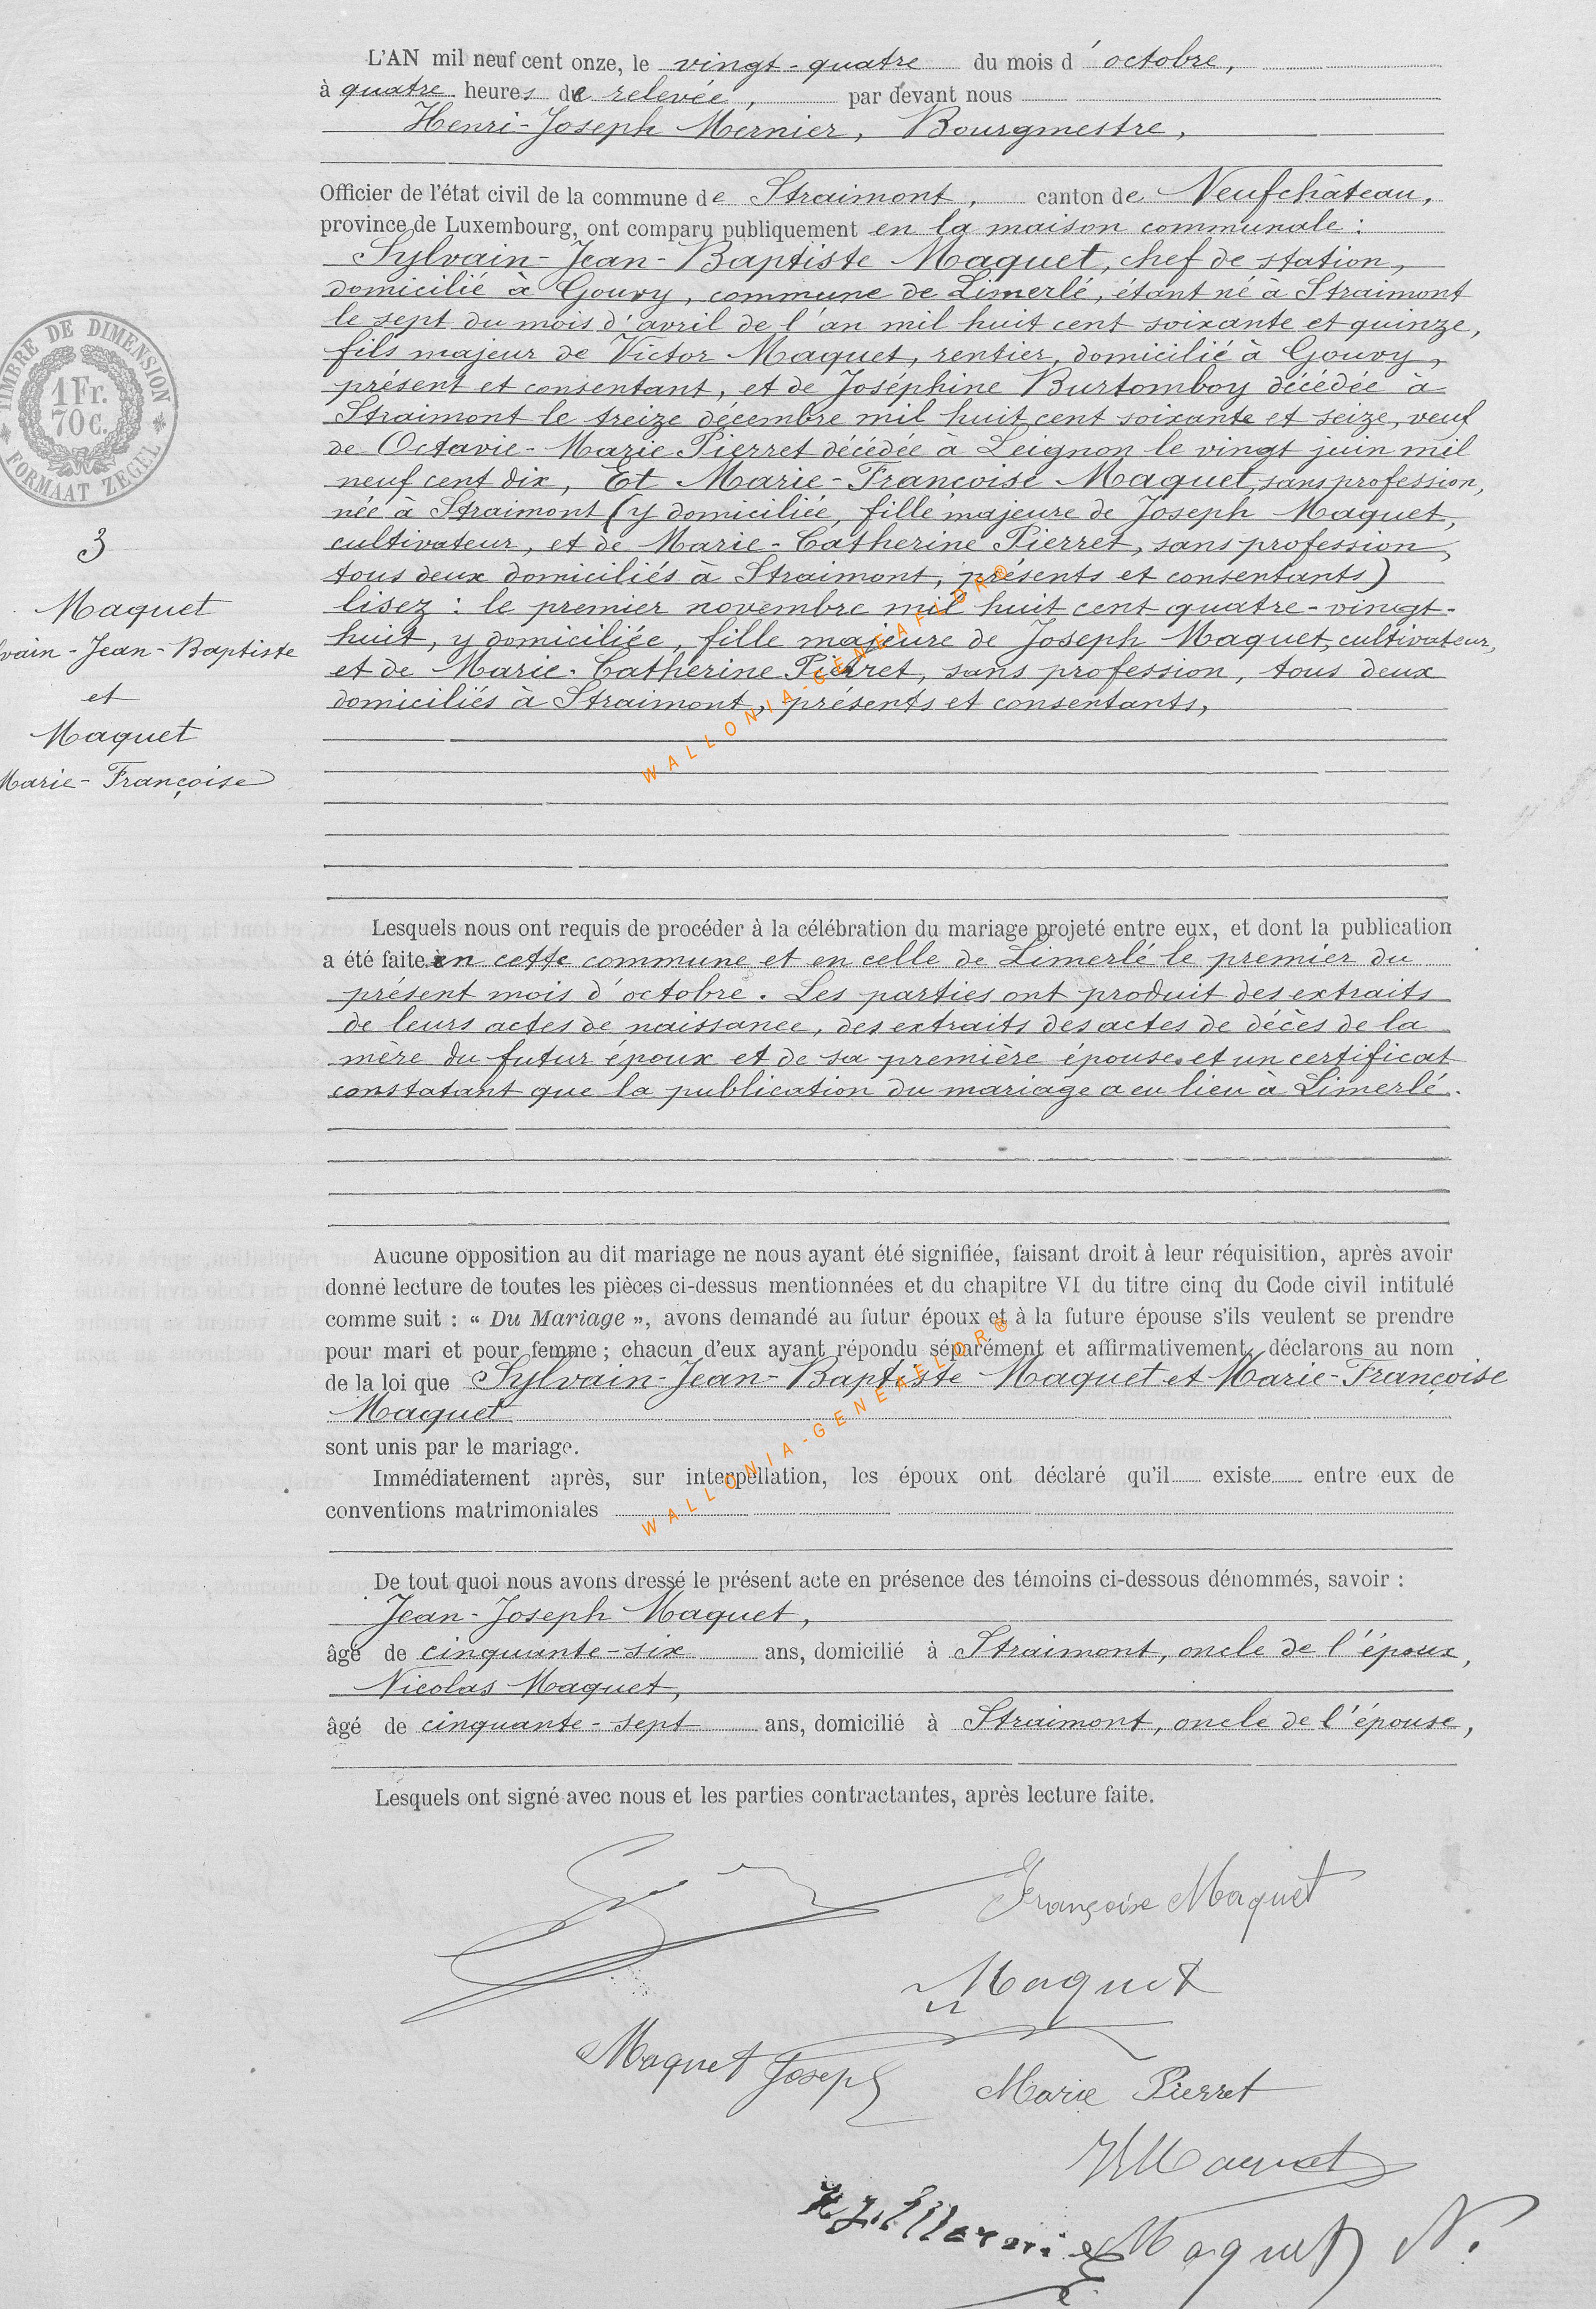 L'AN mil neuf cent onze, le vingt-quatre du mois d'octobre,
à quatre heures de relevée, par devant nous
Henri-Joseph Mernier, Bourgmestre,
Officier de l'état civil de la commune de Straimont, canton de Neufchâteau,
province de Luxembourg, ont comparu publiquement en la maison communale :
Sylvain-Jean-Baptiste Maquet, chef de station,
domicilié à Gouvy, commune de Limerlé, étant né à Straimont
le sept du mois d'avril de l'an mil huit cent soixante et quinze,
fils majeur de Victor Maquet, rentier, domicilié à Gouvy,
présent et consentant, et de Joséphine Burtomboy décédée à
Straimont le treize décembre mil huit cent soixante et seize, veuf
de Octavie-Marie Pierret décédée à Leignon le vingt juin mil
neuf cent dix, Et Marie-Françoise Maquet, sans profession,
née à Straimont (y domiciliée, fille majeure de Joseph Maquet,
cultivateur, et de Marie-Catherine Pierret, sans profession,
tous deux domiciliés à Straimont, présents et consentants)
lisez : le premier novembre mil huit cent quatre-vingt-
huit, y domiciliée, fille majeure de Joseph Maquet, cultivateur,
et de Marie-Catherine Pierret, sans profession, tous deux
domiciliés à Straimont, présents et consentants,
TIMBRE DE DIMENSION
1 Fr.
70 c.
FORMAAT ZEGEL
3
Maquet
vain-Jean-Baptiste
et
Maquet
Marie-Françoise
WALLONIA-GENEAFLOR®
Lesquels nous ont requis de procéder à la célébration du mariage projeté entre eux, et dont la publication
a été faite en cette commune et en celle de Limerlé le premier du
présent mois d'octobre. Les parties ont produit des extraits
de leurs actes de naissance, des extraits des actes de décès de la
mère du futur époux et de sa première épouse et un certificat
constatant que la publication du mariage a eu lieu à Limerlé.
Aucune opposition au dit mariage ne nous ayant été signifiée, faisant droit à leur réquisition, après avoir
donné lecture de toutes les pièces ci-dessus mentionnées et du chapitre VI du titre cinq du Code civil intitulé
comme suit : « Du Mariage », avons demandé au futur époux et à la future épouse s'ils veulent se prendre
pour mari et pour femme ; chacun d'eux ayant répondu séparément et affirmativement, déclarons au nom
de la loi que Sylvain-Jean-Baptiste Maquet et Marie-Françoise
Maquet
sont unis par le mariage.
Immédiatement après, sur interpellation, les époux ont déclaré qu'il existe entre eux de
conventions matrimoniales
WALLONIA-GENEAFLOR®
De tout quoi nous avons dressé le présent acte en présence des témoins ci-dessous dénommés, savoir :
Jean-Joseph Maquet,
âgé de cinquante-six ans, domicilié à Straimont, oncle de l'époux,
Nicolas Maquet,
âgé de cinquante-sept ans, domicilié à Straimont, oncle de l'épouse,
Lesquels ont signé avec nous et les parties contractantes, après lecture faite.
Françoise Maquet
Maquet
Maquet Joseph
Marie Pierret
Maquet
Maquet N.